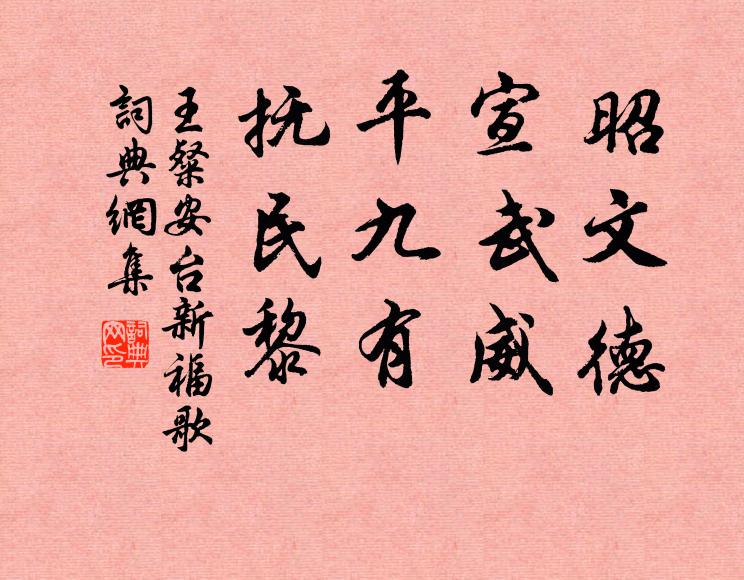 昭文德
宣武威
平九有
抚民黎
王粲安台新福歌
詞典網集
詞典网印